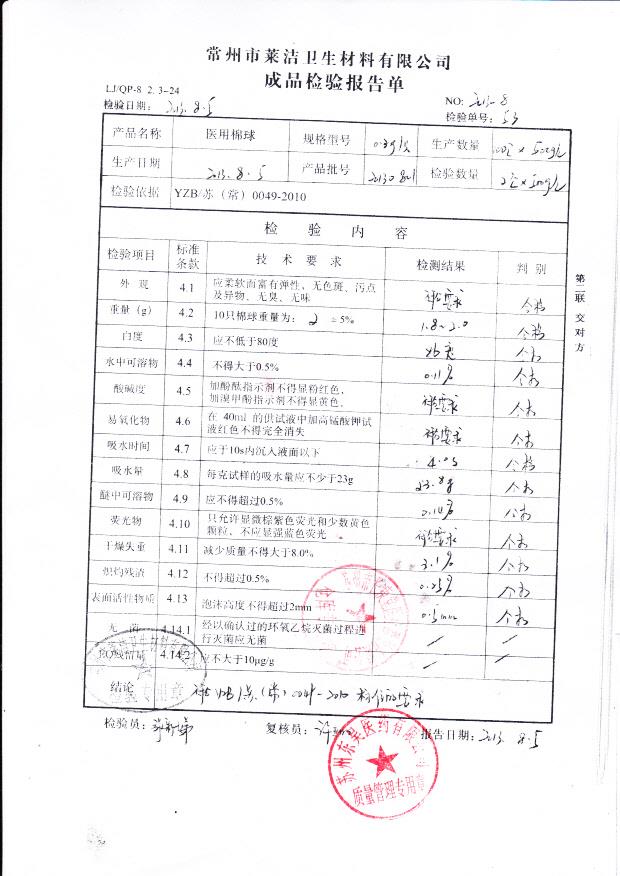 常州市莱洁卫生材料有限公司
成品检验报告单
LJ/QP-8.2.3-24
检验日期: 2013.8.5 NO: 2013-8
检验单号: 53
产品名称 医用棉球 规格型号 生产数量
生产日期 2013.8.5 产品批号 检验数量
检验依据 YZB/苏(常)0049-2010
检 验 内 容
检验项目 标准条款 技 术 要 求 检测结果 判 别
外 观 4.1 应柔软而富有弹性、无色斑、污点及异物、无臭、无味 符合要求 合格
重量(g) 4.2 10只棉球重量为: 2 ±5% 1.8~2.0 合格
白度 4.3 应不低于80度 合格
水中可溶物 4.4 不得大于0.5% 0.11% 合格
酸碱度 4.5 加酚酞指示剂不得显粉红色, 加溴甲酚指示剂不得显黄色. 符合要求 合格
易氧化物 4.6 在 40ml 的供试液中加高锰酸钾试液红色不得完全消失 符合要求 合格
吸水时间 4.7 应于10s内沉入液面以下 4.0s 合格
吸水量 4.8 每克试样的吸水量应不少于23g 23.8g 合格
醚中可溶物 4.9 应不得超过0.5% 0.14% 合格
荧光物 4.10 只允许显微棕紫色荧光和少数黄色颗粒、不应显强蓝色荧光 符合要求 合格
干燥失重 4.11 减少质量不得大于8.0% 3.1% 合格
炽灼残渣 4.12 不得超过0.5% 0.25% 合格
表面活性物质 4.13 泡沫高度不得超过2mm 0.5mm 合格
无 菌 4.14.1 经以确认过的环氧乙烷灭菌过程进行灭菌应无菌 / /
EO残留量 4.14.2 应不大于10μg/g / /
结论 符合YZB/苏(常)0049-2010标准的要求
检验员: 复核员: 报告日期: 2013.8.5
第二联 交对方
苏州东吴医药有限公司
质量管理专用章